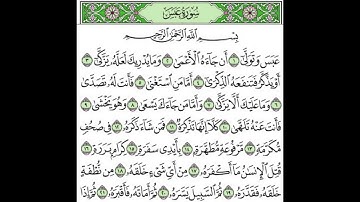 سُورَةُ عَبَسَ
بِسْمِ اللَّهِ الرَّحْمَٰنِ الرَّحِيمِ
عَبَسَ وَتَوَلَّىٰ ١ أَن جَاءَهُ الْأَعْمَىٰ ٢ وَمَا يُدْرِيكَ لَعَلَّهُ يَزَّكَّىٰ ٣
أَوْ يَذَّكَّرُ فَتَنفَعَهُ الذِّكْرَىٰ ٤ أَمَّا مَنِ اسْتَغْنَىٰ ٥ فَأَنتَ لَهُ تَصَدَّىٰ
٦ وَمَا عَلَيْكَ أَلَّا يَزَّكَّىٰ ٧ وَأَمَّا مَن جَاءَكَ يَسْعَىٰ ٨ وَهُوَ يَخْشَىٰ ٩
فَأَنتَ عَنْهُ تَلَهَّىٰ ١٠ كَلَّا إِنَّهَا تَذْكِرَةٌ ١١ فَمَن شَاءَ ذَكَرَهُ ١٢ فِي صُحُفٍ
مُّكَرَّمَةٍ ١٣ مَّرْفُوعَةٍ مُّطَهَّرَةٍ ١٤ بِأَيْدِي سَفَرَةٍ ١٥ كِرَامٍ بَرَرَةٍ ١٦
قُتِلَ الْإِنسَانُ مَا أَكْفَرَهُ ١٧ مِنْ أَيِّ شَيْءٍ خَلَقَهُ ١٨ مِن نُّطْفَةٍ
خَلَقَهُ فَقَدَّرَهُ ١٩ ثُمَّ السَّبِيلَ يَسَّرَهُ ٢٠ ثُمَّ أَمَاتَهُ فَأَقْبَرَهُ ٢١ ثُمَّ إِذَا